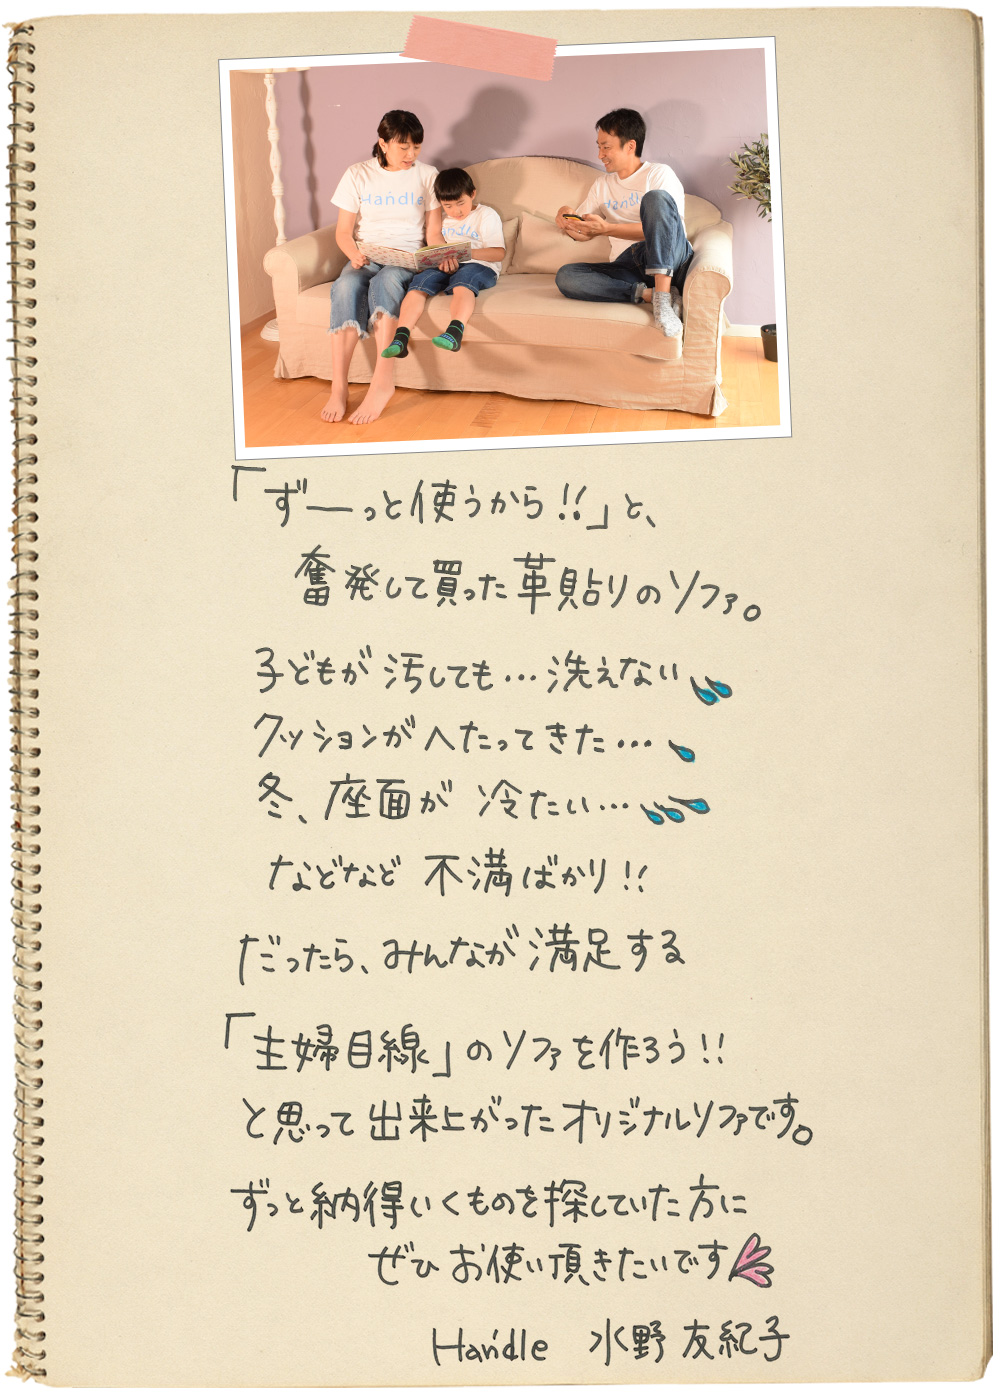 Handle
Handle
Handle
「ずーっと使うから!!」と、
奮発して買った革貼りのソファ。
子どもが汚しても…洗えない
クッションがへたってきた…
冬、座面が冷たい…
などなど不満ばかり!!
だったら、みんなが満足する
「主婦目線」のソファを作ろう!!
と思って出来上がったオリジナルソファです。
ずっと納得いくものを探していた方に
ぜひお使い頂きたいです
Handle 水野友紀子